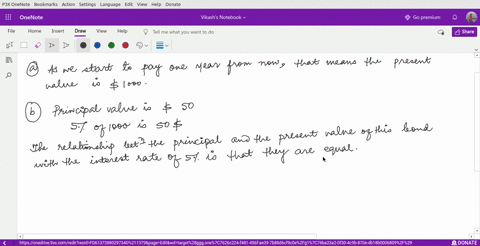 P3X OneNote Bookmarks Action Settings Language Edit View Help Donate
OneNote
Vikash's Notebook
Go premium
File Home Insert Draw View Help
Tell me what you want to do
Share
(a) As we start to pay one year from now, that means the present
value is $1000.
(b) Principal value is $ 50
5% of 1000 is 50 $
The relationship betn the principal and the present value of this bond
with the interest rate of 5% is that they are equal.
DONATE